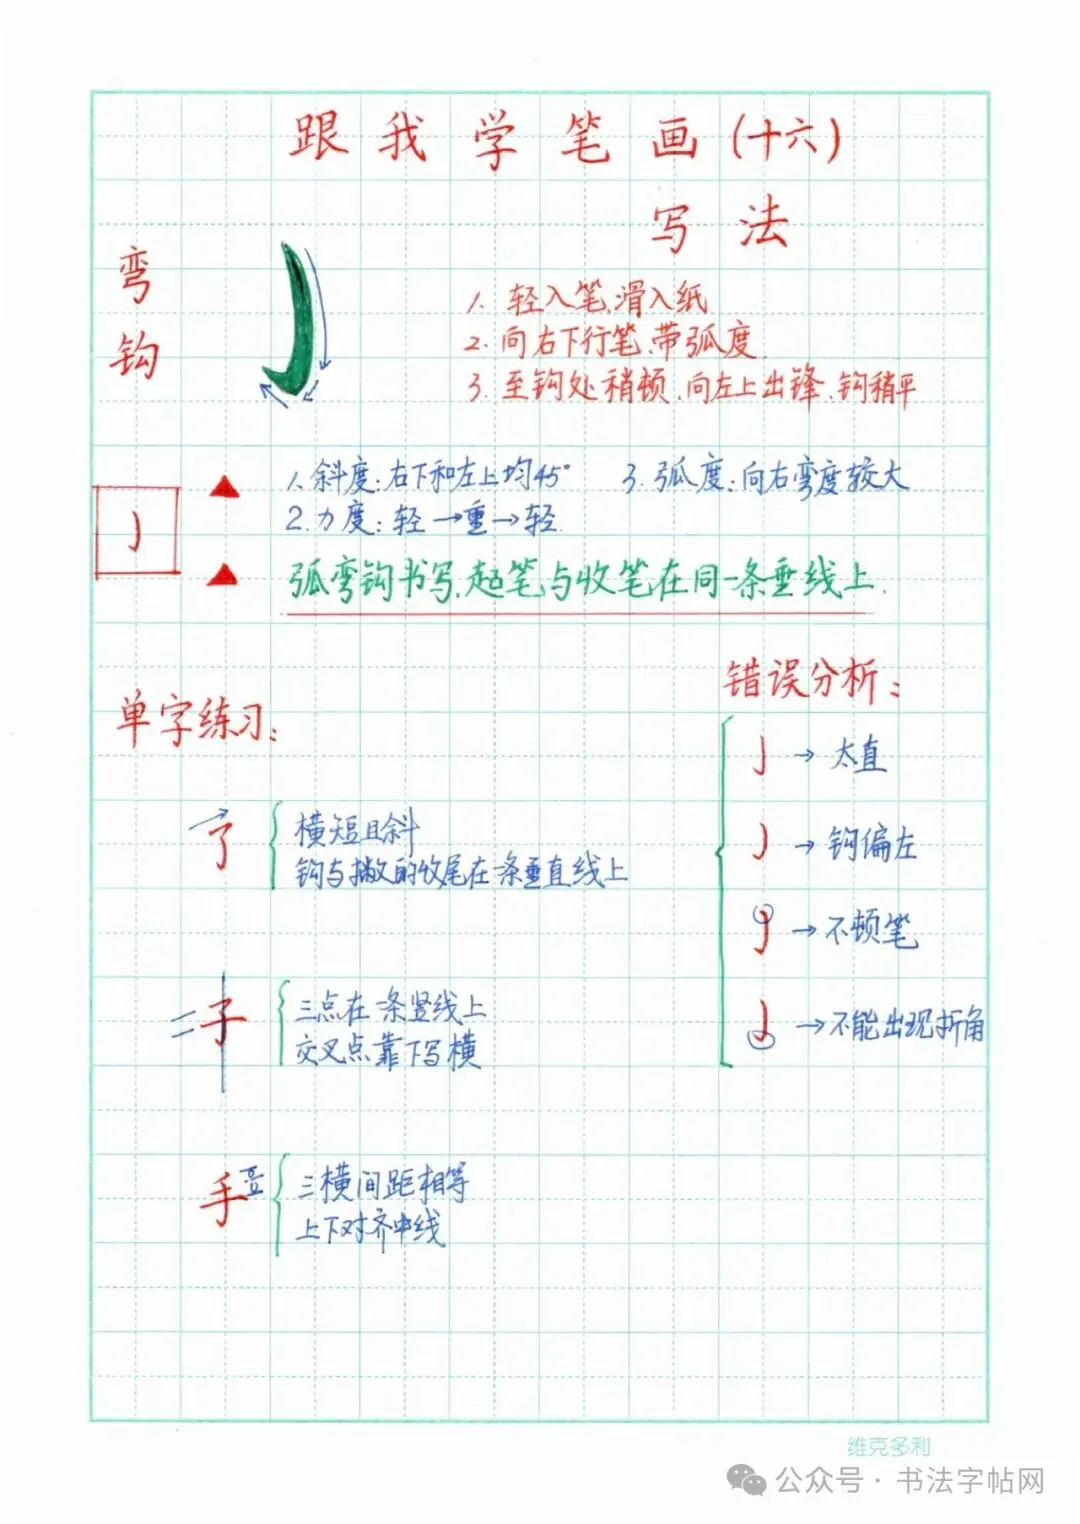 跟我学笔画(十六)
写法
弯钩
1. 轻入笔、滑入纸
2. 向右下行笔、带弧度
3. 至钩处稍顿、向左上出锋、钩稍平
1. 斜度:右下和左上均45°
3. 弧度:向右弯度较大
2. 力度:轻→重→轻
弧弯钩书写、起笔与收笔在同一条垂线上.
错误分析:
亅→太直
亅→钩偏左
亅→不顿笔
亅→不能出现折角
单字练习:
了
横短且斜
钩与撇的收尾在一条垂直线上
子
三点在一条竖线上
交叉点靠下写横
手
三横间距相等
上下对齐中线
维克多利
公众号·书法字帖网